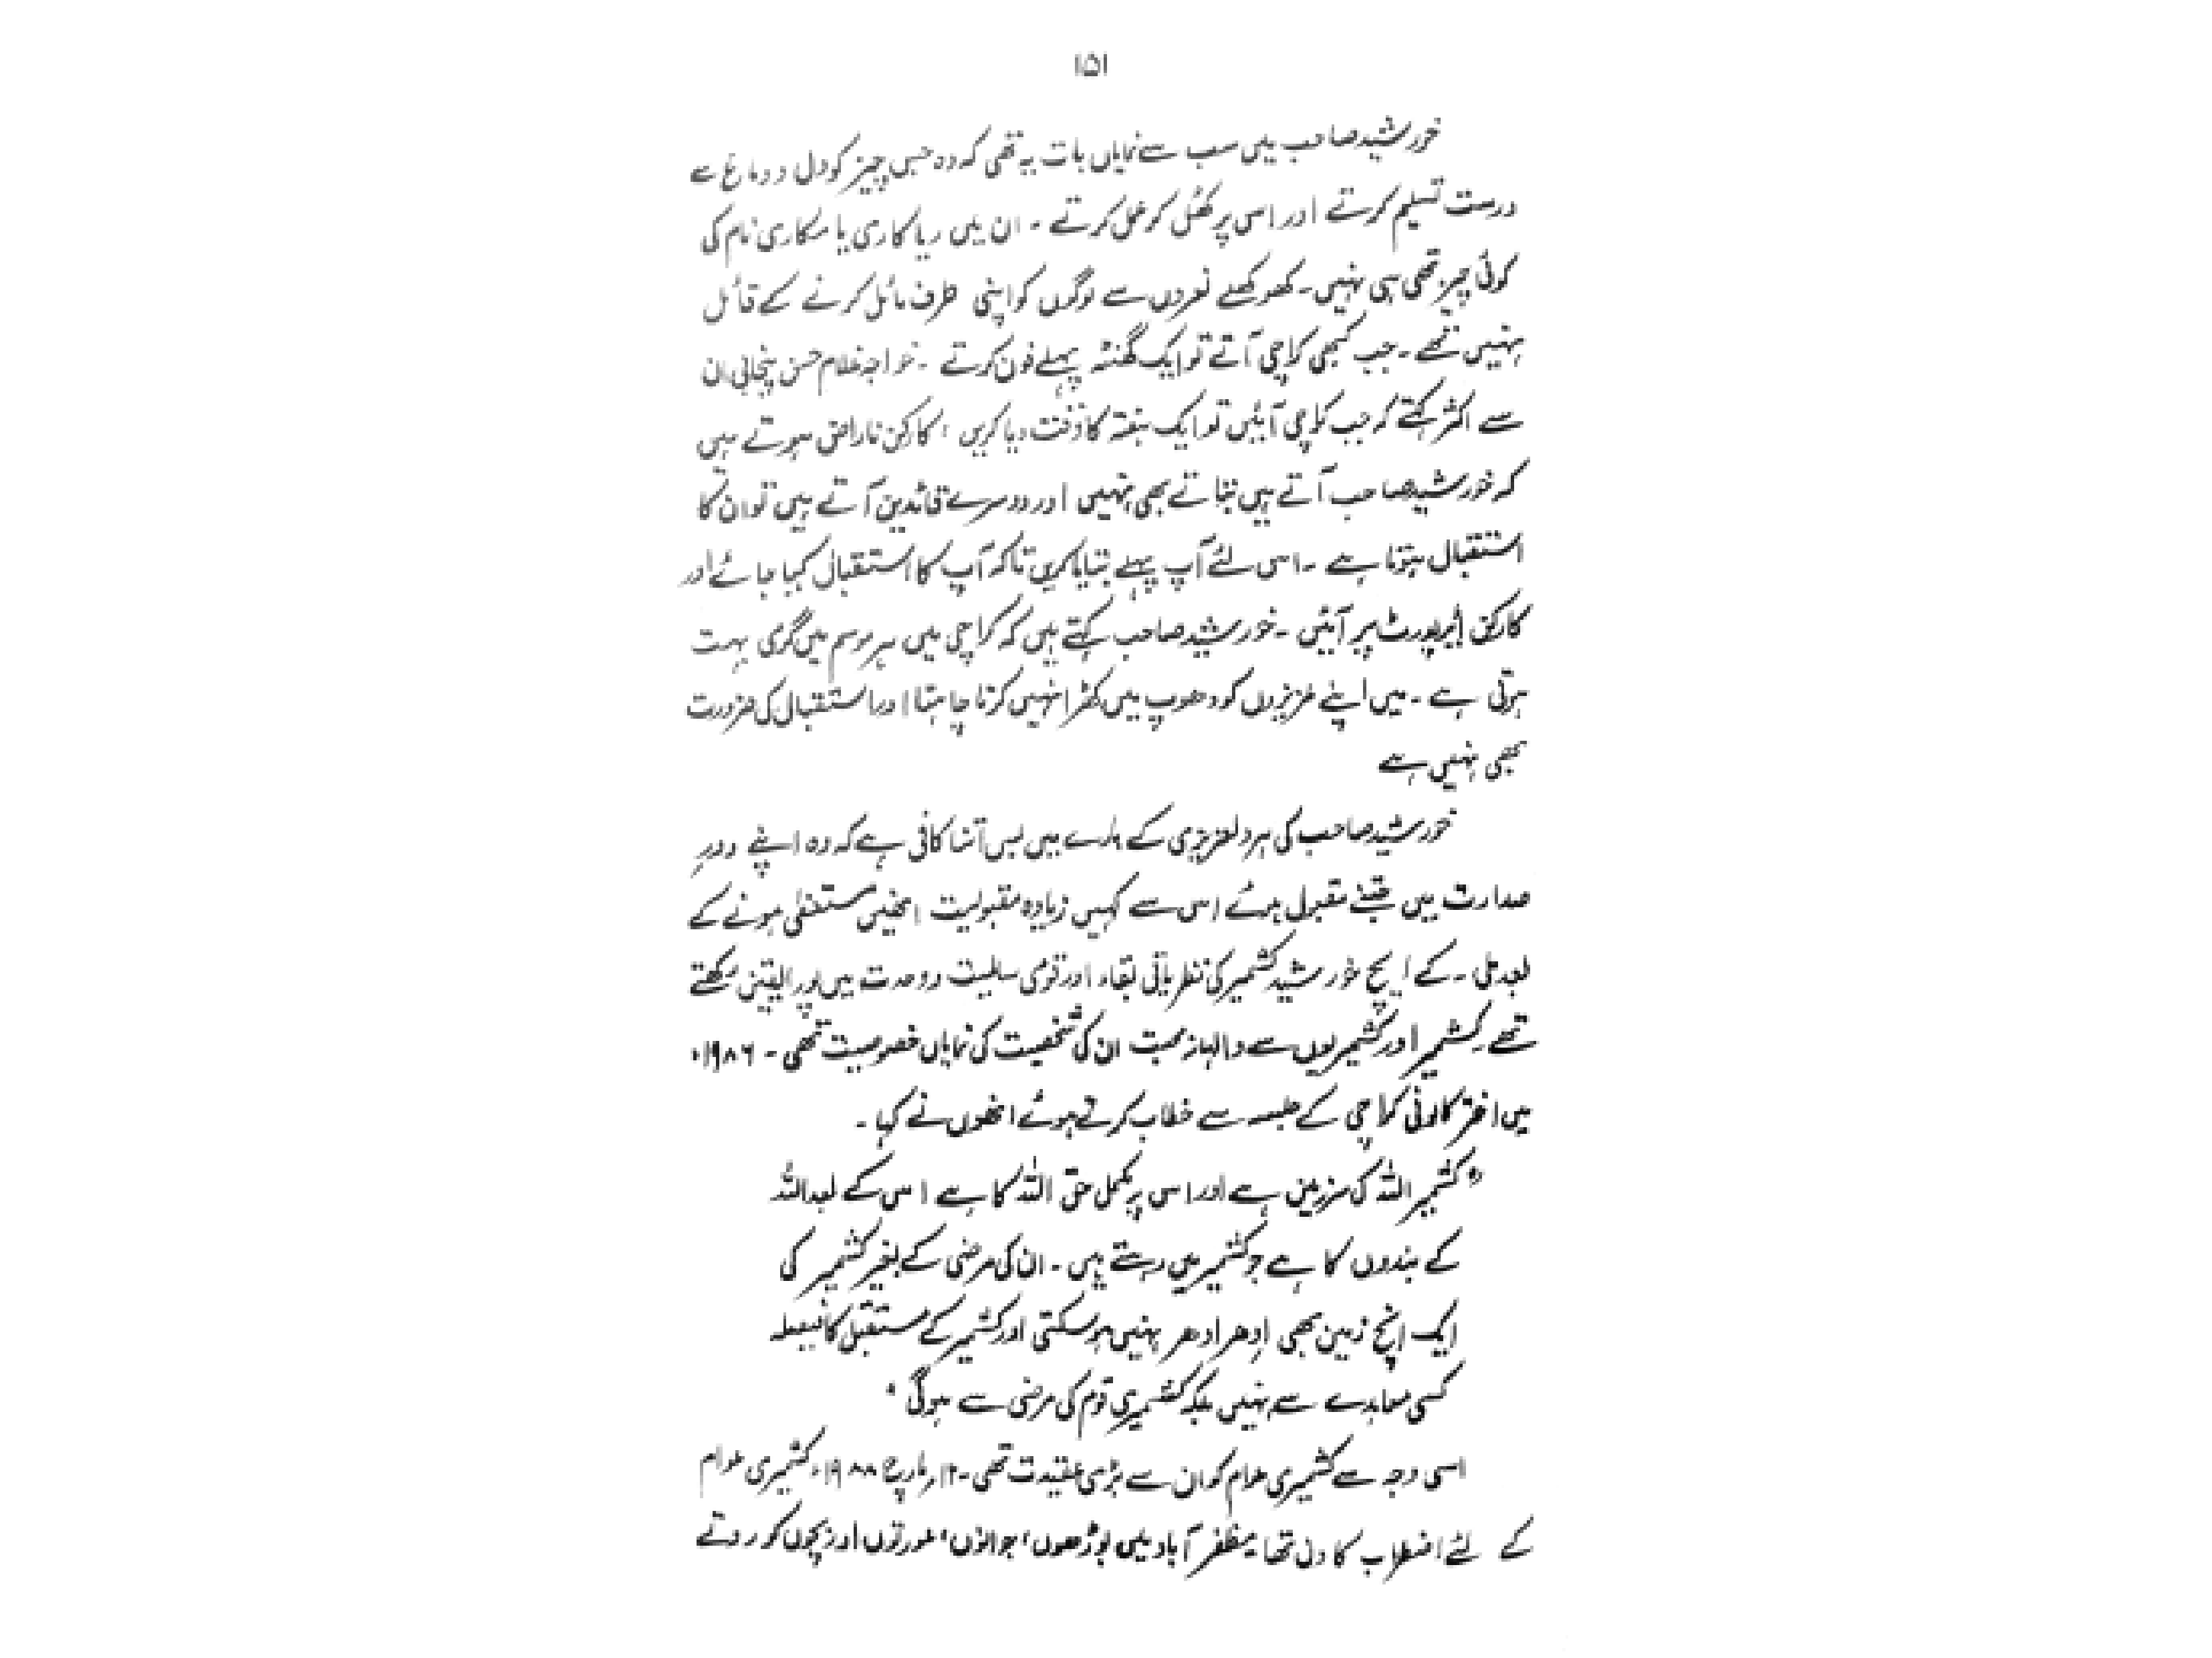 ۱۵۱
خورشید صاحب میں سب سے نمایاں بات یہ تھی کہ وہ جس چیز کو دل و دماغ سے
درست تسلیم کرتے اور اسی پر کھُل کو عمل کرتے ۔ ان میں ریا کاری یا مکاری نام کی
کوئی چیز تھی ہی نہیں ۔ کھوکھلے نعروں سے لوگوں کو اپنی طرف مائل کرنے کے قائل
نہیں تھے ۔ جب کبھی کراچی آتے تو ایک گھنٹہ پہلے فون کرتے ۔ خواجہ غلام حسن پنجابی ان
سے اکثر کہتے کہ جب کراچی آئیں تو ایک ہفتہ کا وقت دیا کریں ، کارکن ناراض ہوتے ہیں
کہ خورشید صاحب آتے ہیں بتاتے بھی نہیں اور دوسرے قائدین آتے ہیں تو ان کا
استقبال ہوتا ہے ۔ اسی لئے آپ پہلے بتایا کریں تاکہ آپ کا استقبال کیا جائے اور
کارکن ایئرپورٹ پر آئیں ۔ خورشید صاحب کہتے ہیں کہ کراچی میں ہر موسم میں گرمی بہت
ہوتی ہے ۔ میں اپنے عزیزوں کو دھوپ میں کھڑا نہیں کرنا چاہتا اور استقبال کی ضرورت
بھی نہیں ہے
خورشید صاحب کی ہر دلعزیزی کے بارے میں بس اتنا کافی ہے کہ وہ اپنے دورِ
صدارت میں جتنے مقبول ہوئے اس سے کہیں زیادہ مقبولیت انھیں مستعفی ہونے کے
بعد ملی ۔ کے ایچ خورشید کشمیر کی نظریاتی بقاء اور قومی سالمیت و وحدت میں پورا یقین رکھتے
تھے ۔ کشمیر اور کشمیریوں سے والہانہ محبت ان کی شخصیت کی نمایاں خصوصیت تھی ۔ ۱۹۸۶ء
میں اختر کالونی کراچی کے جلسہ سے خطاب کرتے ہوئے انھوں نے کہا ۔
" کشمیر اللہ کی سرزمین ہے اور اس پر مکمل حق اللہ کا ہے اس کے بعد اللہ
کے بندوں کا ہے جو کشمیر میں رہتے ہیں ۔ ان کی مرضی کے بغیر کشمیر کی
ایک انچ زمین بھی اِدھر ادھر نہیں ہو سکتی اور کشمیر کے مستقبل کا فیصلہ
کسی معاہدے سے نہیں بلکہ کشمیری قوم کی مرضی سے ہوگی "
اسی وجہ سے کشمیری عوام کو ان سے بڑی عقیدت تھی ۔ ۱۲ مارچ ۱۹۸۸ء کشمیری عوام
کے لئے اضطراب کا دن تھا ۔ مظفر آباد میں بوڑھوں ، جوانوں ، عورتوں اور بچوں کو روتے